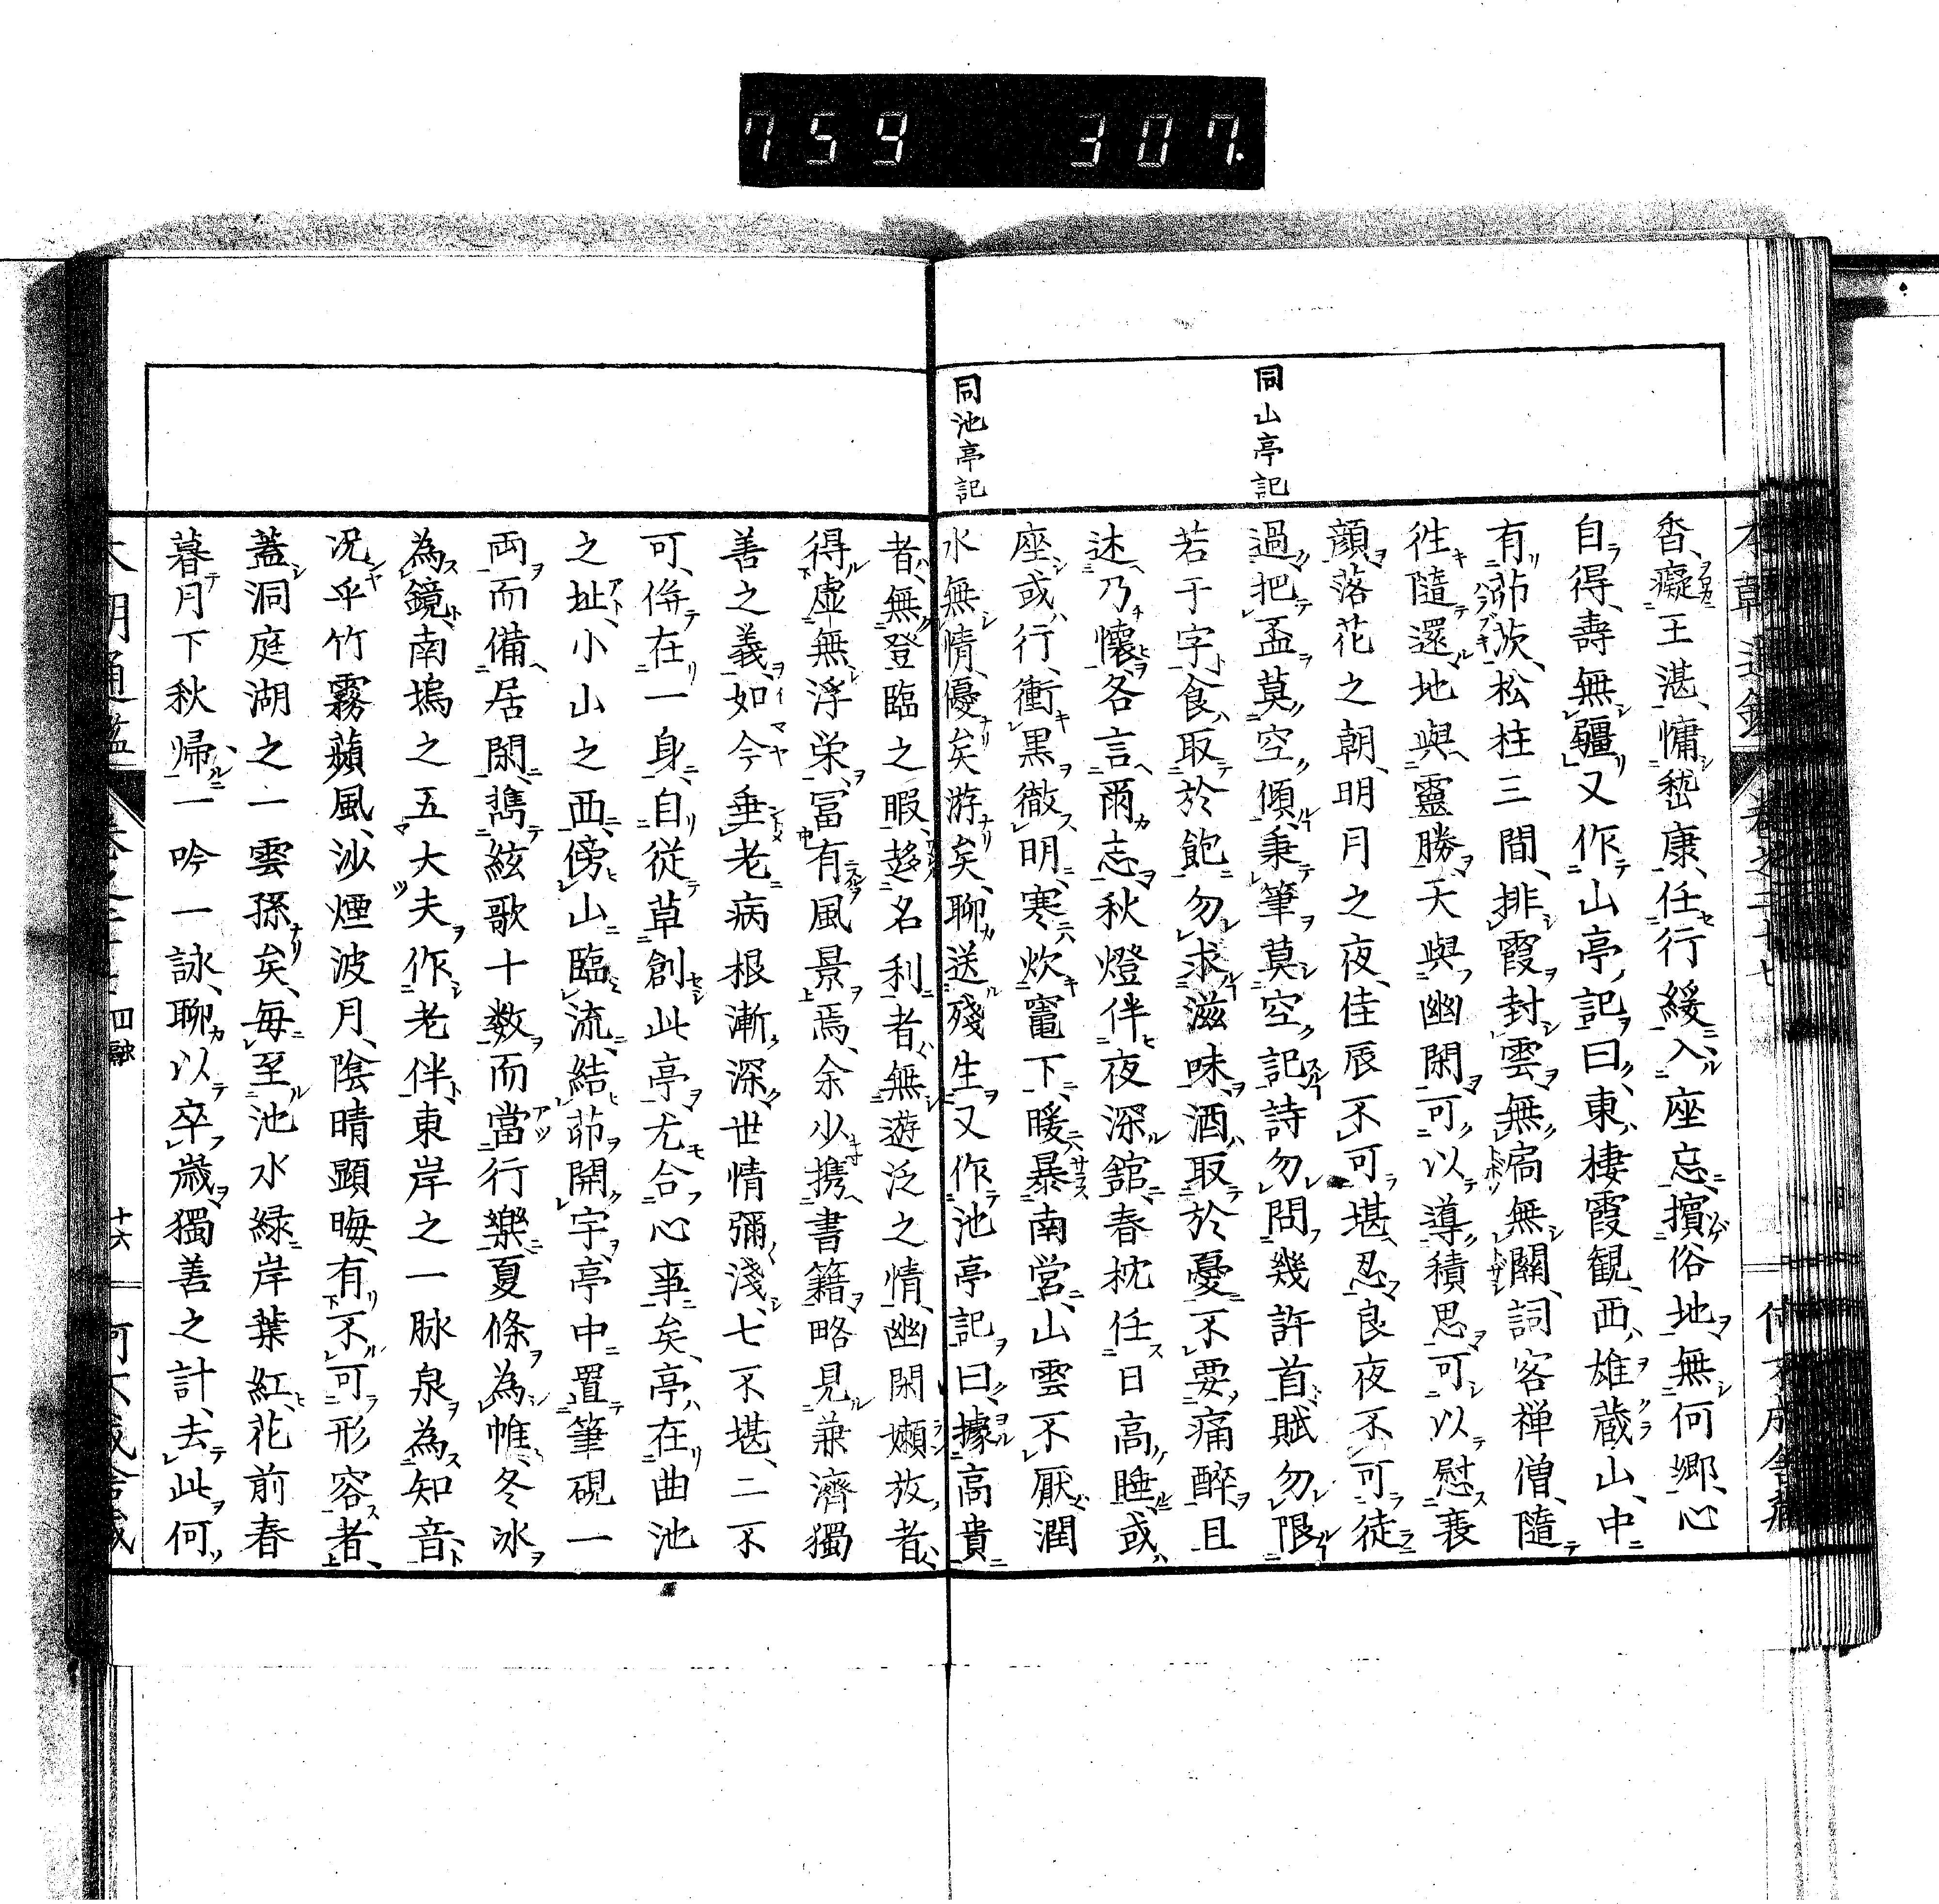 759 307.
同山亭記
同池亭記
香癡王湛慵嵆康任行緩入座忘擯俗地無何郷心
自得壽無疆又作山亭記曰東棲霞観西雄蔵山中
有茆茨松柱三間排霞封雲無扃無關詞客禅僧隨
徃隨還地與靈勝天與幽閑可以導積思可以慰衰
顔落花之朝明月之夜佳辰不可堪忍良夜不可徒
過把盃莫空傾秉筆莫空記詩勿問幾許首賦勿限
若干字食取於飽勿求滋味酒取於憂不要痛醉且
述乃懐各言爾志秋燈伴夜深舘春枕任日高睡或
座或行衝黒徹明寒炊竃下暖暴南営山雲不厭潤
水無情優矣游矣聊送殘生又作池亭記曰據高貴
者無登臨之暇趍名利者無遊泛之情幽閑嬾放者
得虚無浮栄冨有風景焉余少携書籍略見兼濟獨
善之義如今垂老病根漸深世情彌淺七不堪二不
可併在一身自従草創此亭尤合心事矣亭在曲池
之址小山之西傍山臨流結茆開宇亭中置筆硯一
両而備居閑携絃歌十数而當行樂夏條為帷冬冰
為鏡南塢之五大夫作老伴東岸之一脉泉為知音
况乎竹霧蘋風沙煙波月陰晴顕晦有不可形容者
蓋洞庭湖之一雲孫矣毎至池水緑岸葉紅花前春
暮月下秋帰一吟一詠聊以卒歳獨善之計去此何
本朝通鑑
四融
十六